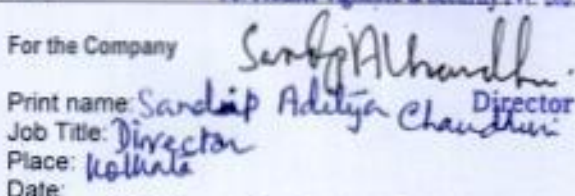 For the Company
Director
Print name: Sandip Aditya Chaudhuri
Job Title: Director
Place: Kolkata
Date: